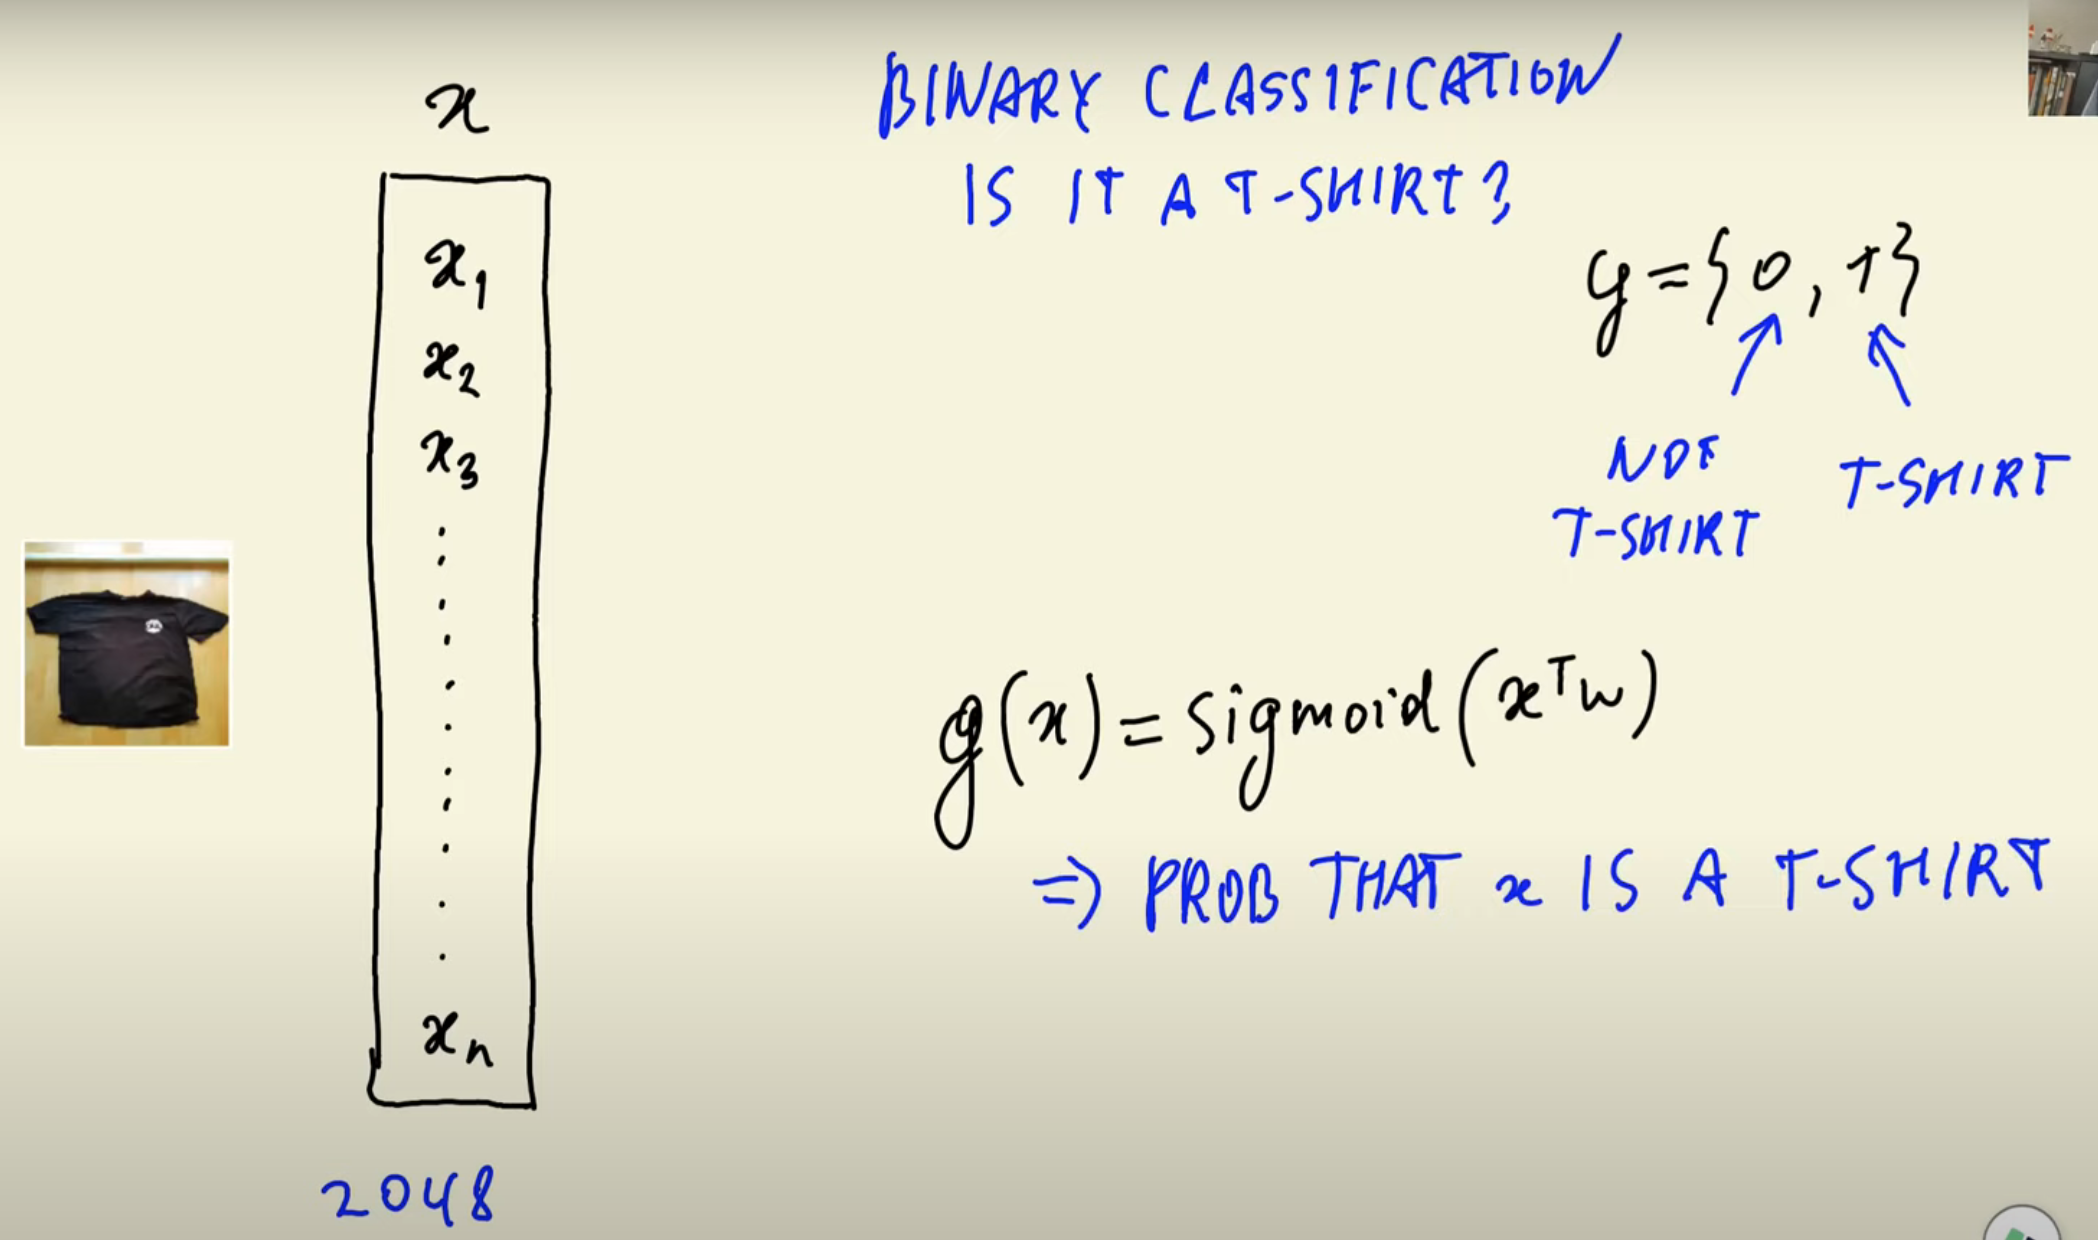 x
x₁
x₂
x₃
xₙ
2048
BINARY CLASSIFICATION
IS IT A T-SHIRT?
y={0,1}
NOT
T-SHIRT
T-SHIRT
g(x)=sigmoid(xᵀw)
⇒ PROB THAT x IS A T-SHIRT